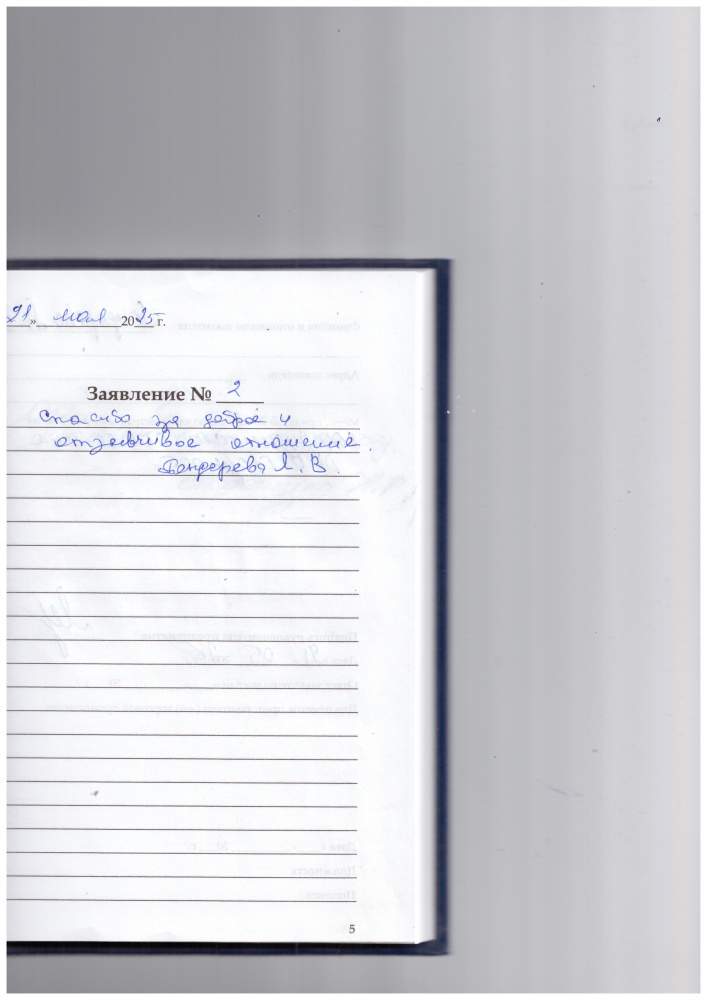 21» мая 2025 г.
Заявление № 2
Спасибо за доброе и
отзывчивое отношение.
Л. В.
5